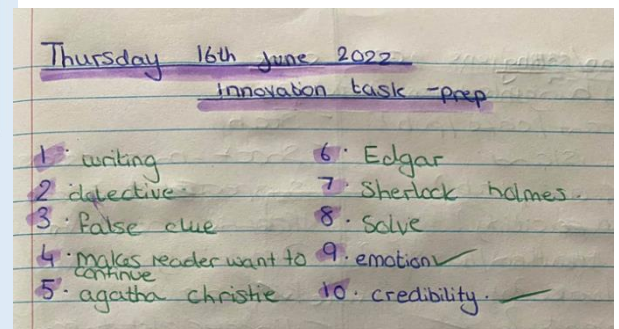 Thursday 16th June 2022
innovation task - prep
1. writing
2 detective.
3. false clue
4. makes reader want to
continue
5. agatha christie
6. Edgar
7. Sherlock holmes.
8. Solve
9. emotion ✓
10. credibility. ✓